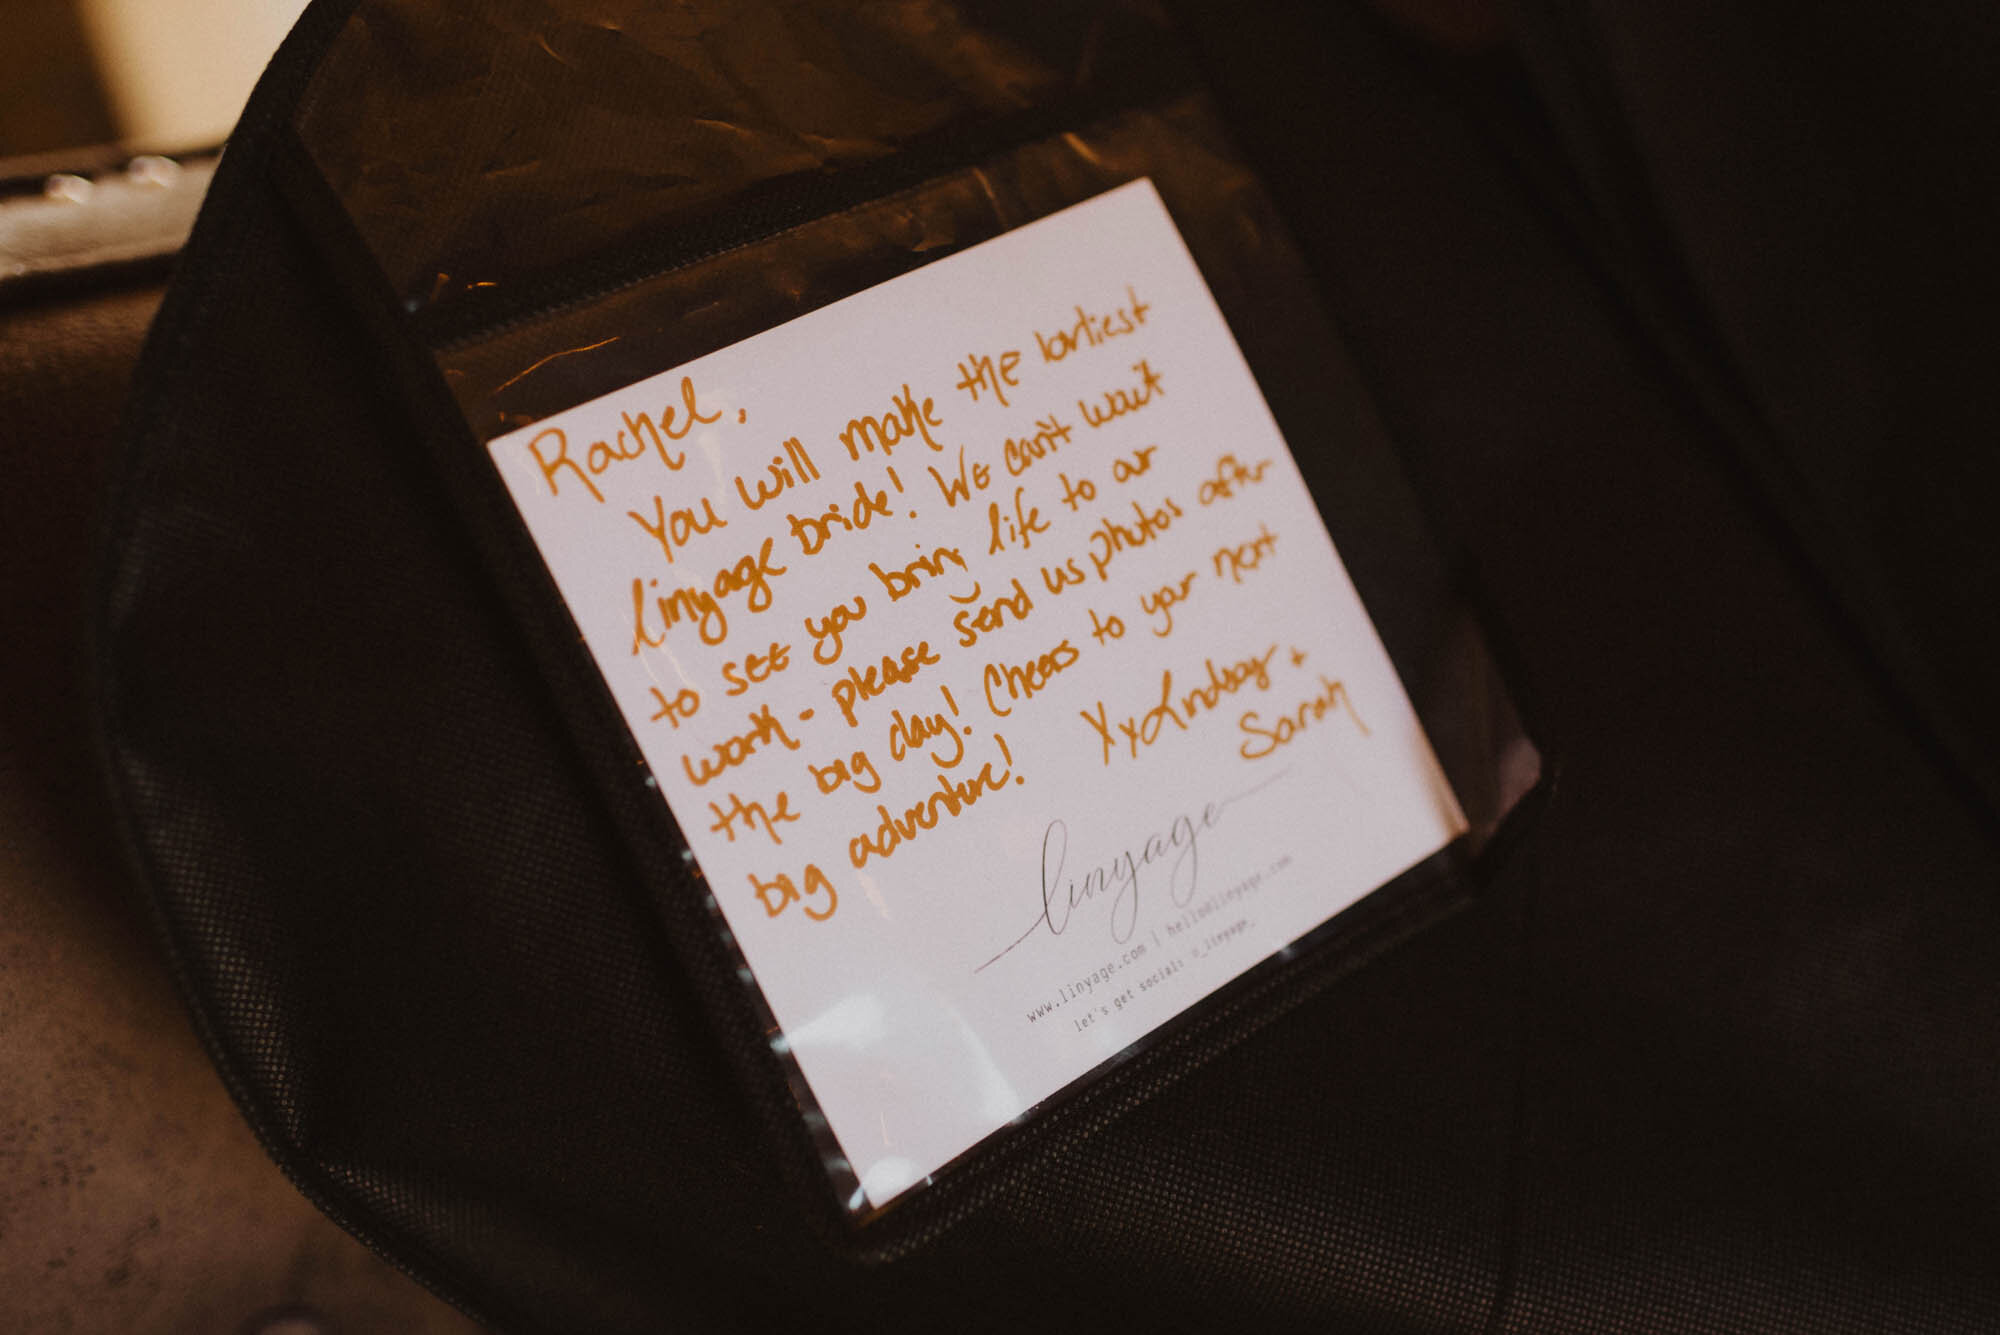 Rachel,
You will make the lovliest
linyage bride! We can't wait
to see you bring life to our
work - please send us photos after
the big day! Cheers to your next
big adventure! Xx Lindsay +
Sarah
linyage
www.linyage.com | hello@linyage.com
let's get social: @_linyage_